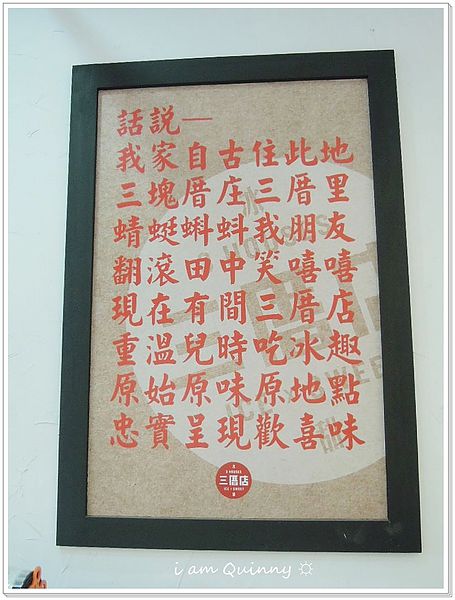 話説—
我家自古住此地
三塊厝庄三厝里
蜻蜓蝌蚪我朋友
翻滾田中笑嘻嘻
現在有間三厝店
重溫兒時吃冰趣
原始原味原地點
忠實呈現歡喜味
3 HOUSES
三厝店
ICE & SWEET
i am Quinny